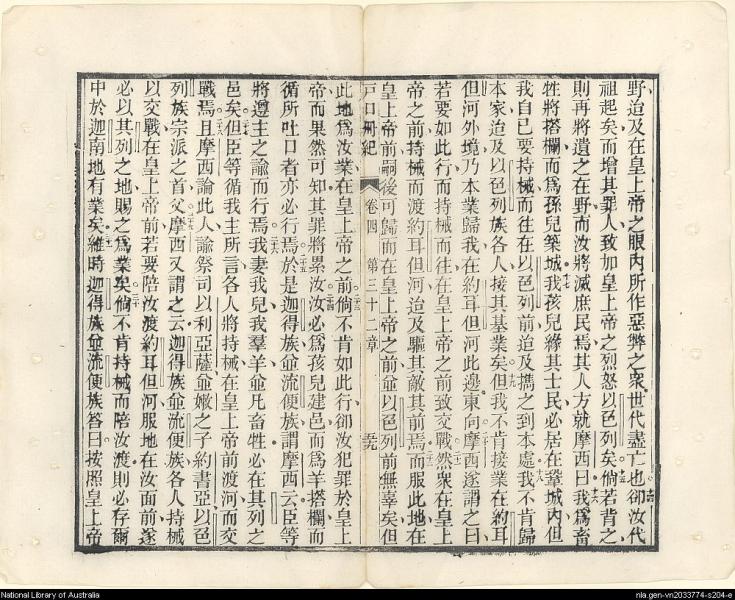 野迨及在皇上帝之眼內所作惡弊之衆世代盡亡也卻汝代
祖起矣而增其罪人致加皇上帝之烈怒以色列矣倘若背之
則再將遺之在野而汝將滅庶民焉其人方就摩西曰我爲畜
牲將搭欄而爲孫兒築城我孩兒緣其士民必居在鞏城內但
我自己要持械而往在以色列前迨及攜之到本處我不肯歸
本家迨及以色列族各人接其基業矣但我不肯接業在約耳
但河外境乃本業歸我在約耳但河此邊東向摩西遂謂之曰
若要如此行而持械而往在皇上帝之前致交戰然衆在皇上
帝之前持械而渡約耳但河迨及驅其敵其前焉而服此地在
皇上帝前嗣後可歸而在皇上帝之前並以色列前無辜矣但
戶口冊紀 卷四 第三十二章
此地爲汝業在皇上帝之前倘不肯如此行卻汝犯罪於皇上
帝而果然可知其罪將累汝汝必爲孩兒建邑而爲羊搭欄而
循所吐口者亦必行焉於是迦得族並流便族謂摩西云臣等
將遵主之諭而行焉我妻我兒我羣羊並凡畜牲必在其列之
邑矣但臣等循我主所言各人將持械在皇上帝前渡河而交
戰焉且摩西諭此人諭祭司以利亞薩並嫩之子約書亞以色
列族宗派之首父摩西又謂之云迦得族並流便族各人持械
以交戰在皇上帝前若要陪汝渡約耳但河服地在汝面前遂
必以其列之地賜之爲業矣倘不肯持械而陪汝渡則必存爾
中於迦南地有業矣維時迦得族並流便族答曰按照皇上帝
National Library of Australia
nla.gen-vn2033774-s204-e